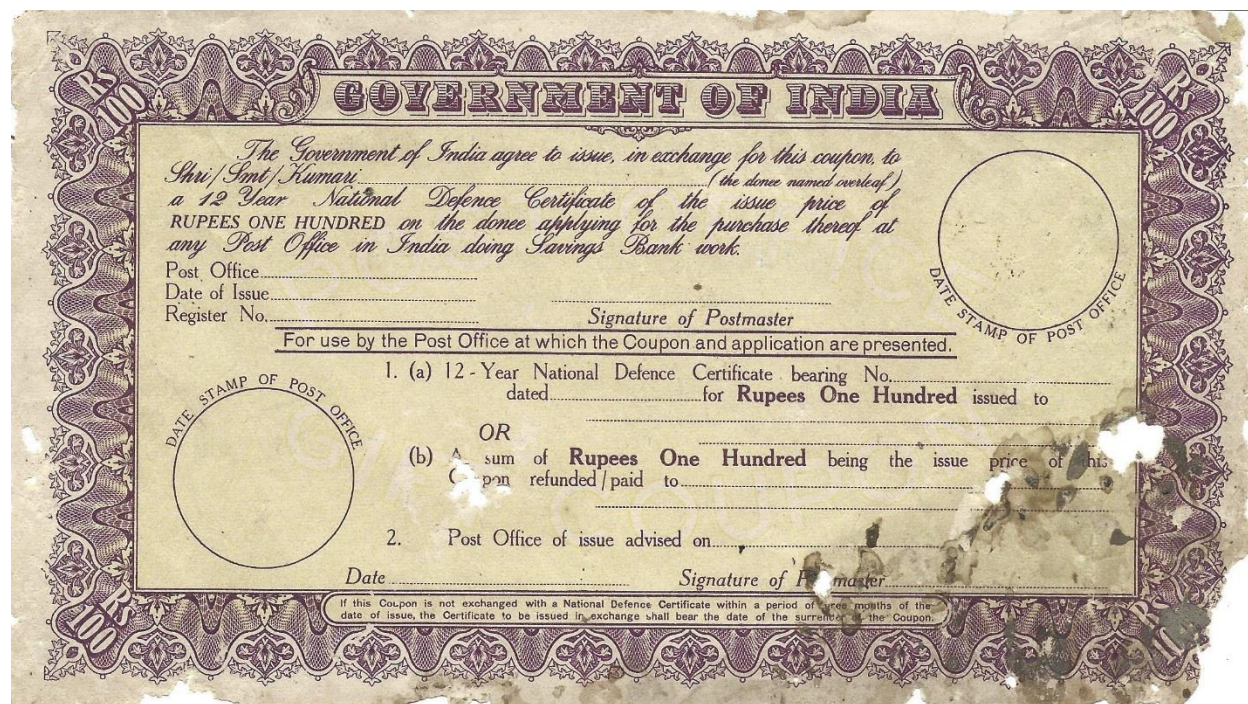 RS 100
Rs 100
GOVERNMENT OF INDIA
The Government of India agree to issue, in exchange for this coupon, to
Shri/Smt/Kumari (the donee named overleaf)
a 12 Year National Defence Certificate of the issue price of
RUPEES ONE HUNDRED on the donee applying for the purchase thereof at
any Post Office in India doing Savings Bank work.
Post Office
Date of Issue
Register No.
Signature of Postmaster
DATE STAMP OF POST OFFICE
For use by the Post Office at which the Coupon and application are presented.
DATE STAMP OF POST OFFICE
1. (a) 12-Year National Defence Certificate bearing No.
dated for Rupees One Hundred issued to
OR
(b) A sum of Rupees One Hundred being the issue price of this
C pon refunded/paid to
2. Post Office of issue advised on
Date Signature of P master
If this Coupon is not exchanged with a National Defence Certificate within a period of three months of the
date of issue, the Certificate to be issued in exchange shall bear the date of the surrender of the Coupon.
Rs 100
Rs 10
GIFT COUPON